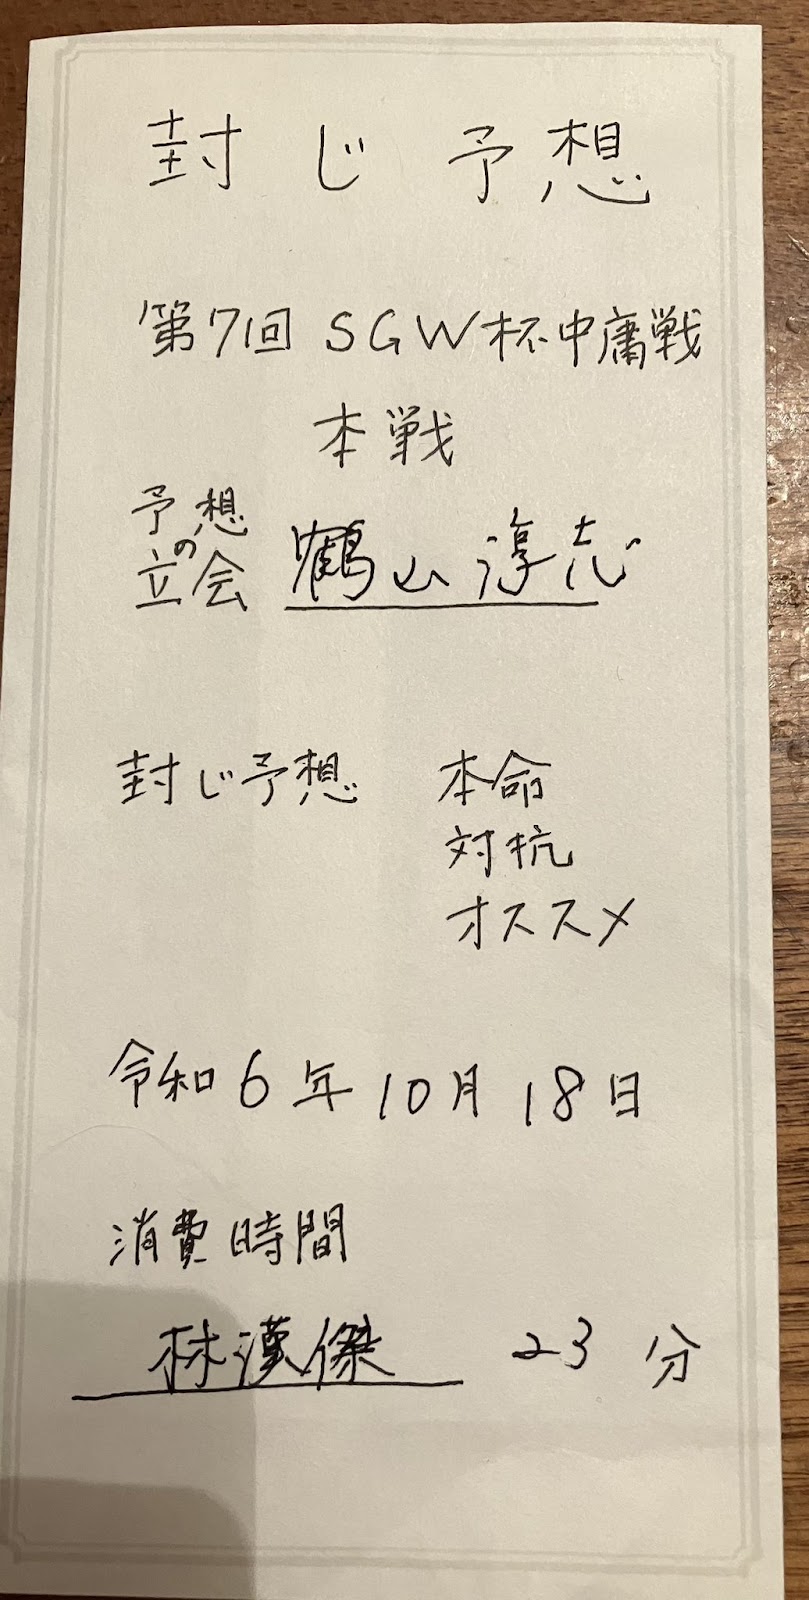 封じ予想
第7回 SGW杯中庸戦
本戦
予想の立会 鶴山淳志
封じ予想 本命
対抗
オススメ
令和6年10月18日
消費時間
林漢傑 23分